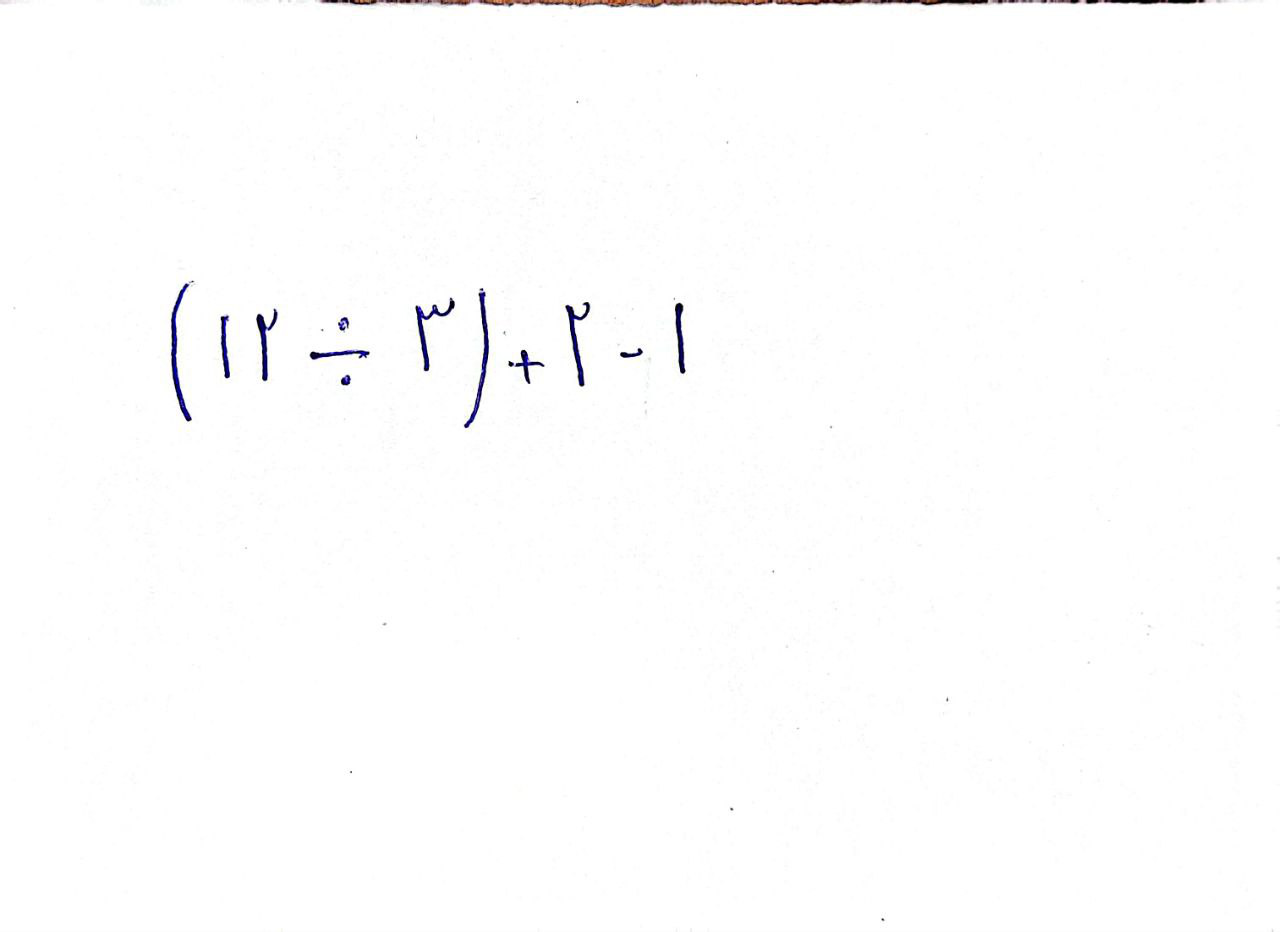 (۱۲ ÷ ۳) + ۲ - ۱